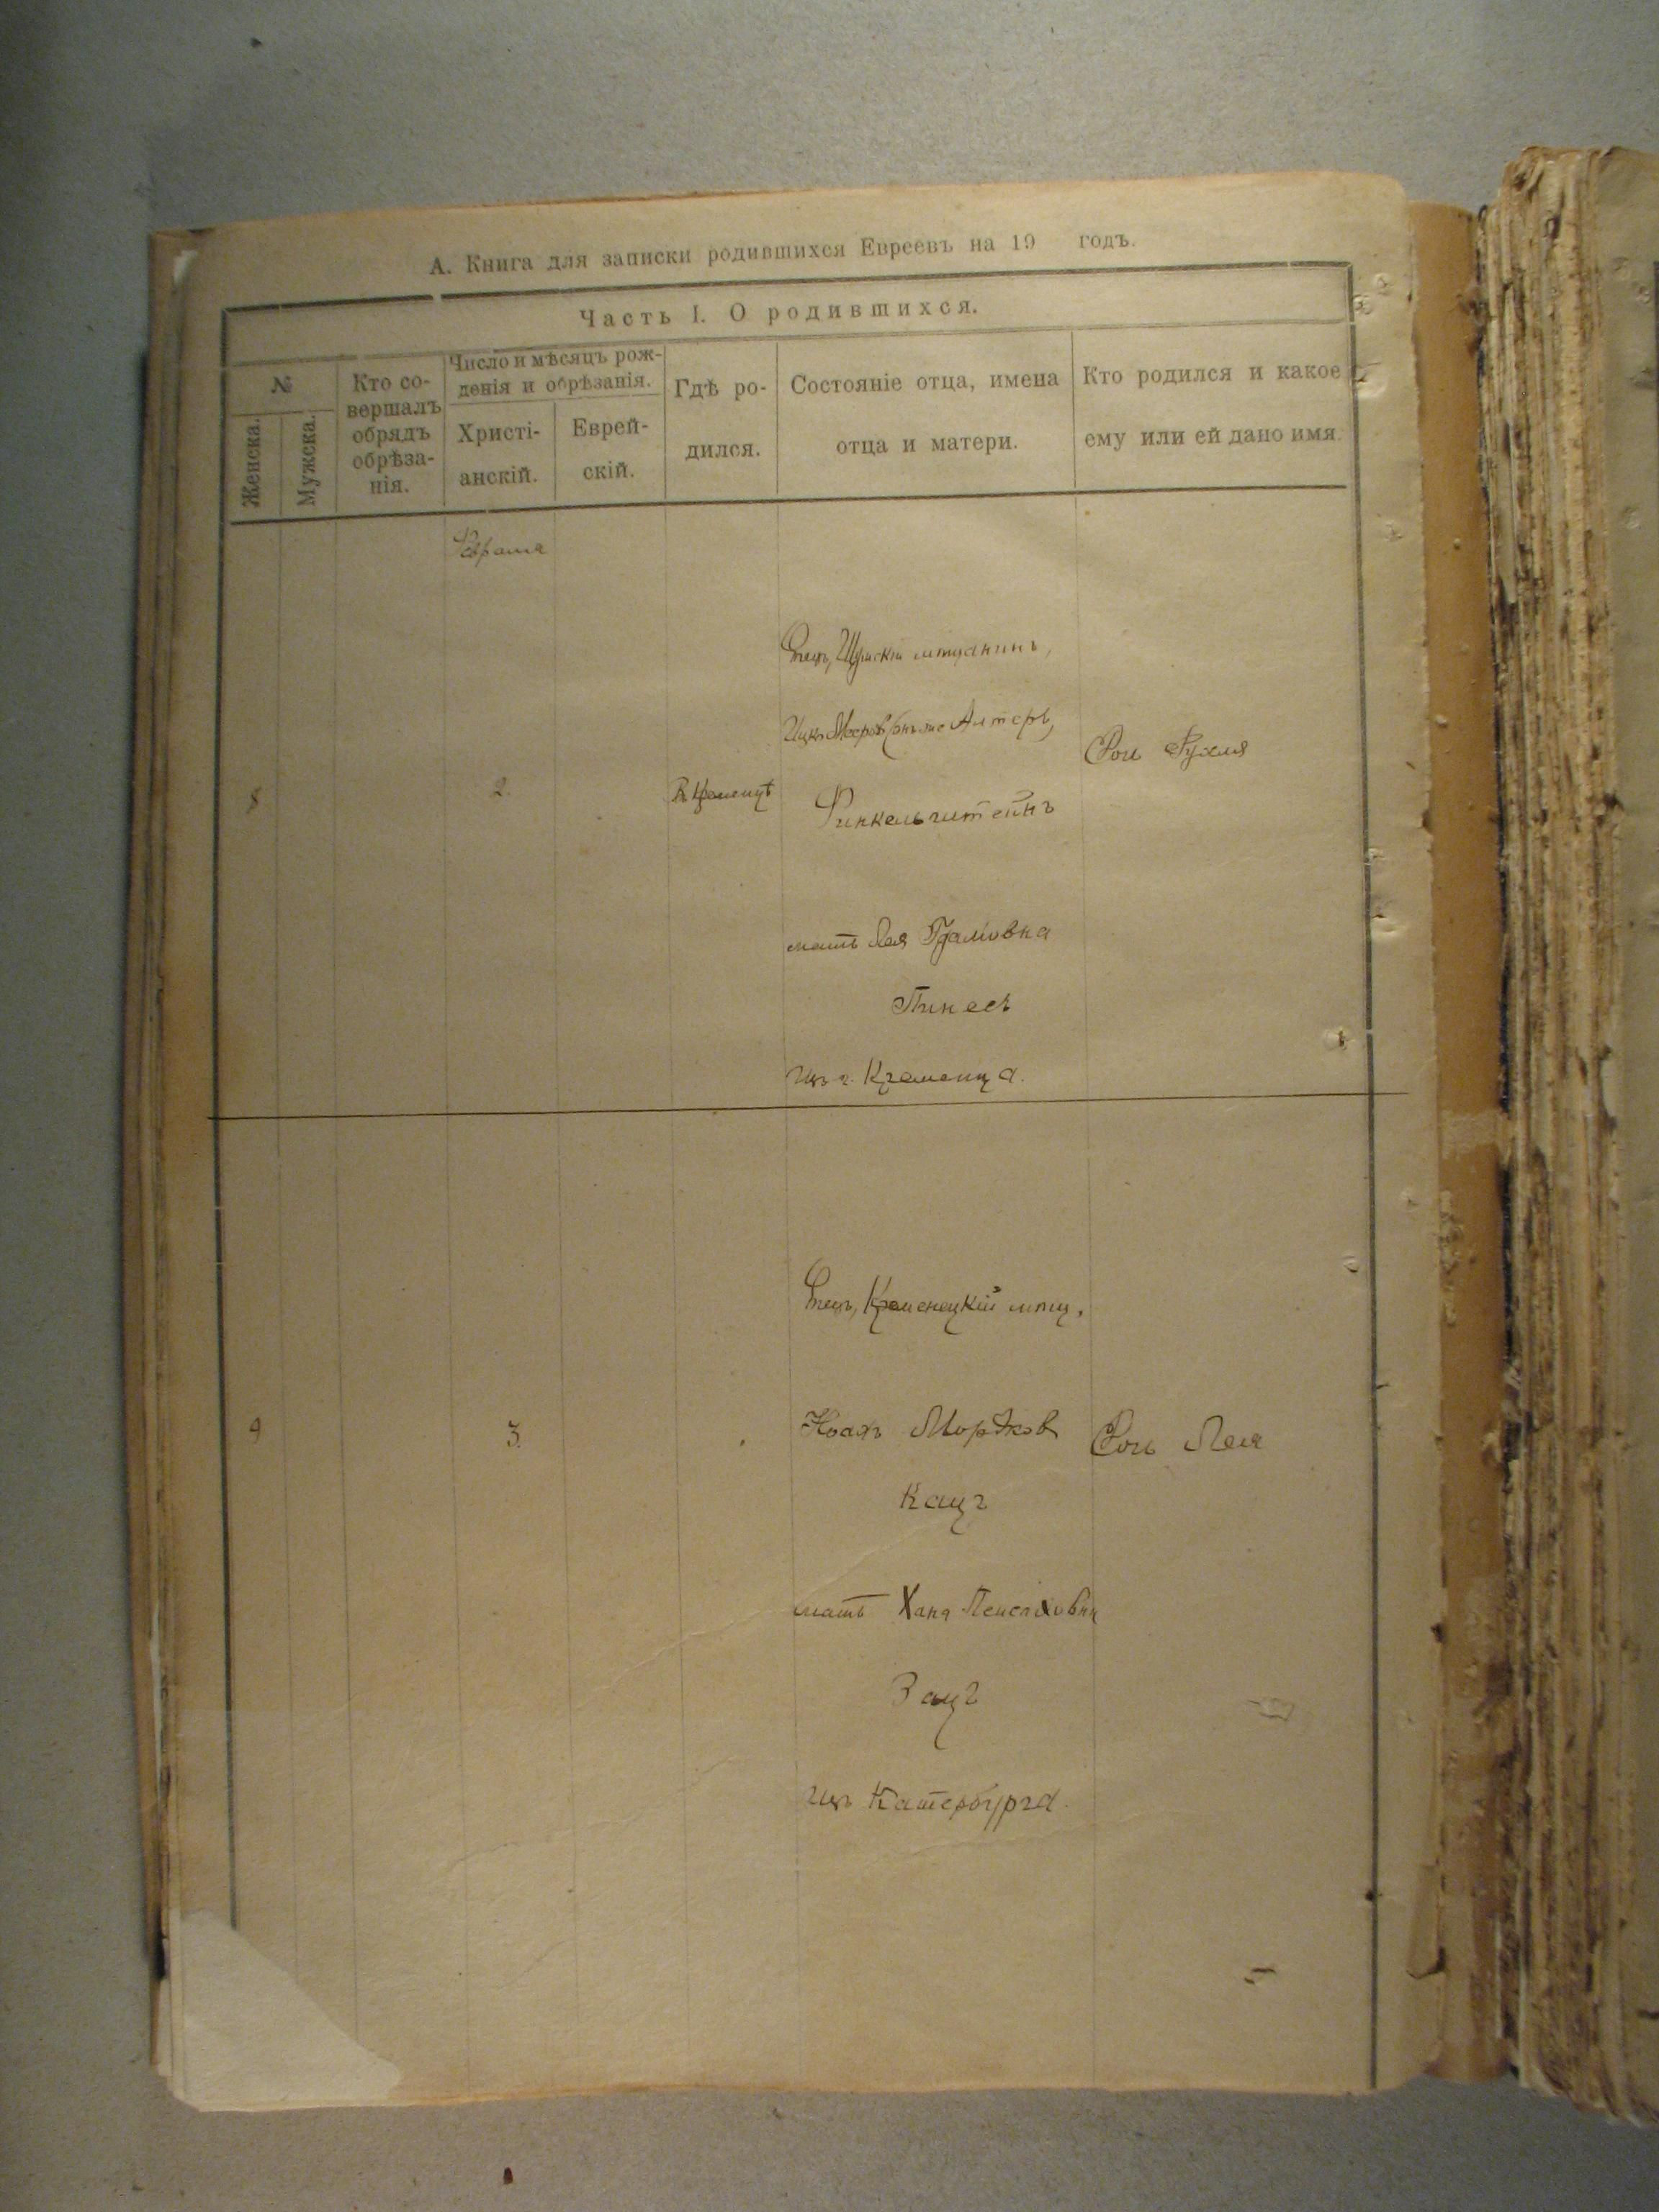 А. Книга для записки родившихся Евреевъ на 19 годъ.
Часть I. О родившихся.
№
Женска.
Мужска.
Кто со-
вершалъ
обрядъ
обрѣза-
нія.
Число и мѣсяцъ рож-
денія и обрѣзанія.
Христі-
анскій.
Еврей-
скій.
Гдѣ ро-
дился.
Состояніе отца, имена
отца и матери.
Кто родился и какое
ему или ей дано имя.
Февраля
8
2
Отецъ, Шумскій мѣщанинъ,
Ицко Алтеръ,
Финкельштейнъ
мать Лея
Пинесъ
изъ г. Кременца.
Дочь Рухля
9
3
Отецъ, Кременецкій мѣщ.
Ноахъ Моржков
Кацъ
мать Хана
Зацъ
изъ Катербурга.
Дочь Лея